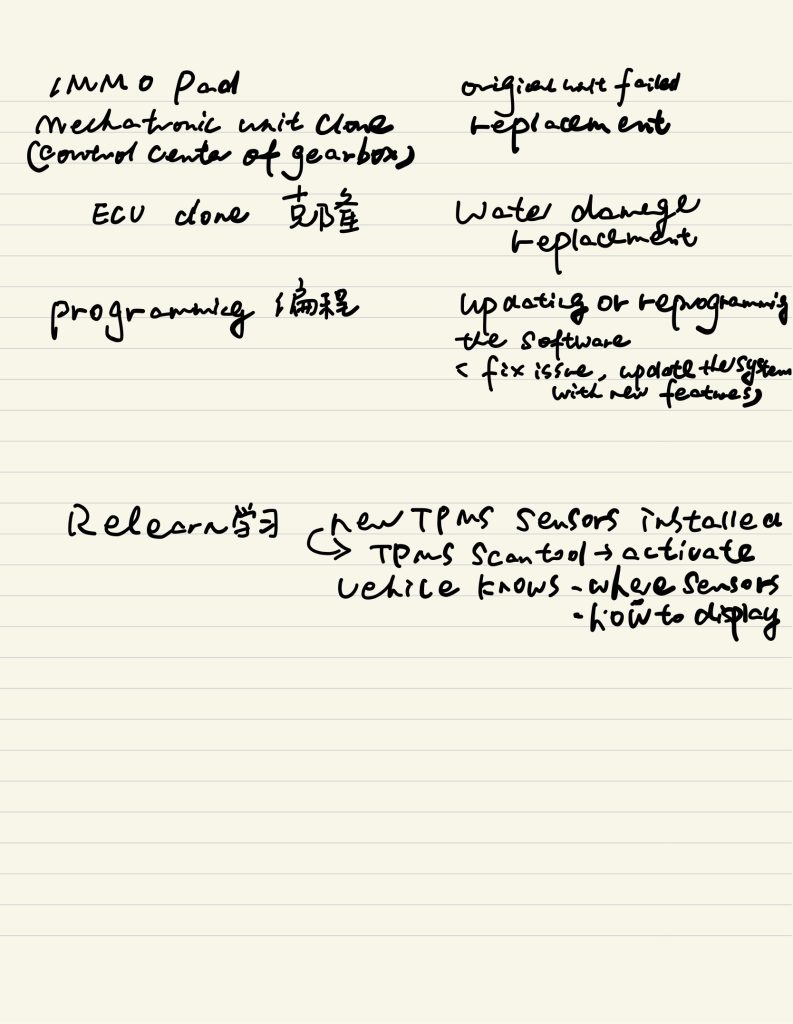 IMMO Pad
original unit failed
Mechatronic unit Clone
replacement
(Control Center of gearbox)
ECU clone 克隆
Water damage
replacement
programming 编程
updating or reprogramming
the software
(fix issue, update the system
with new features)
Relearn 学习
new TPMS sensors installed
TPMS Scan tool → activate
vehilce knows - where sensors
- how to display